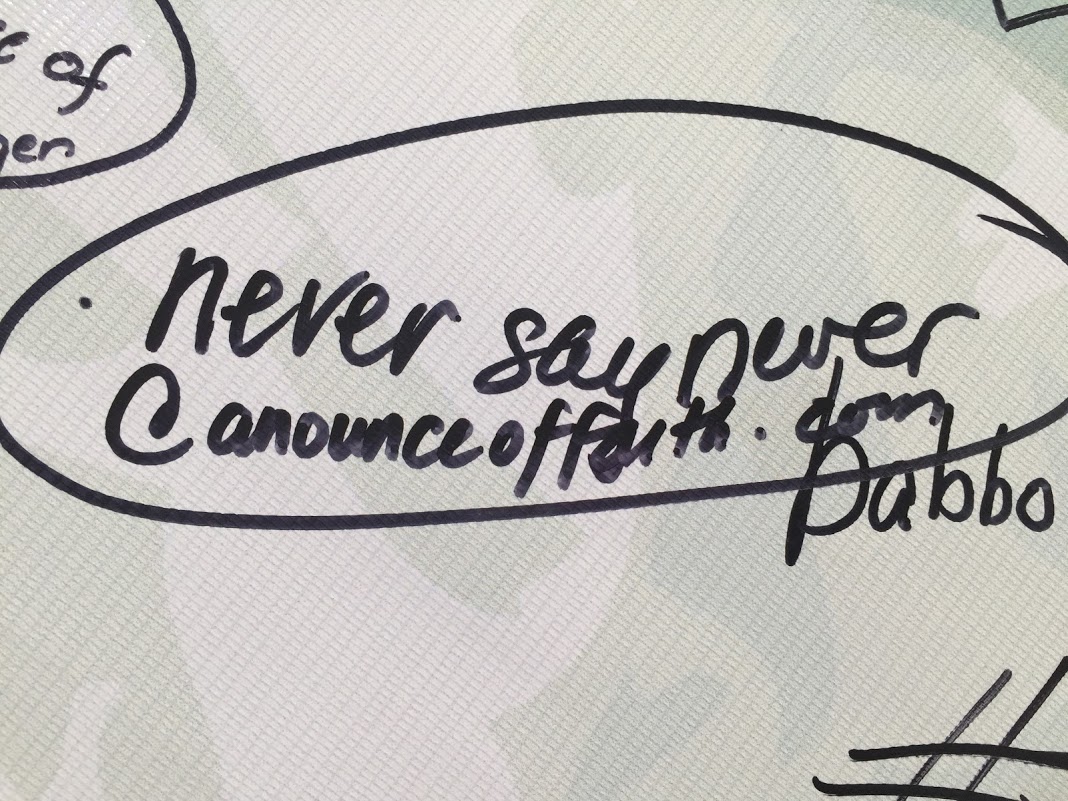 of
never say never
C anounceoffaith.com
Pabbo
#